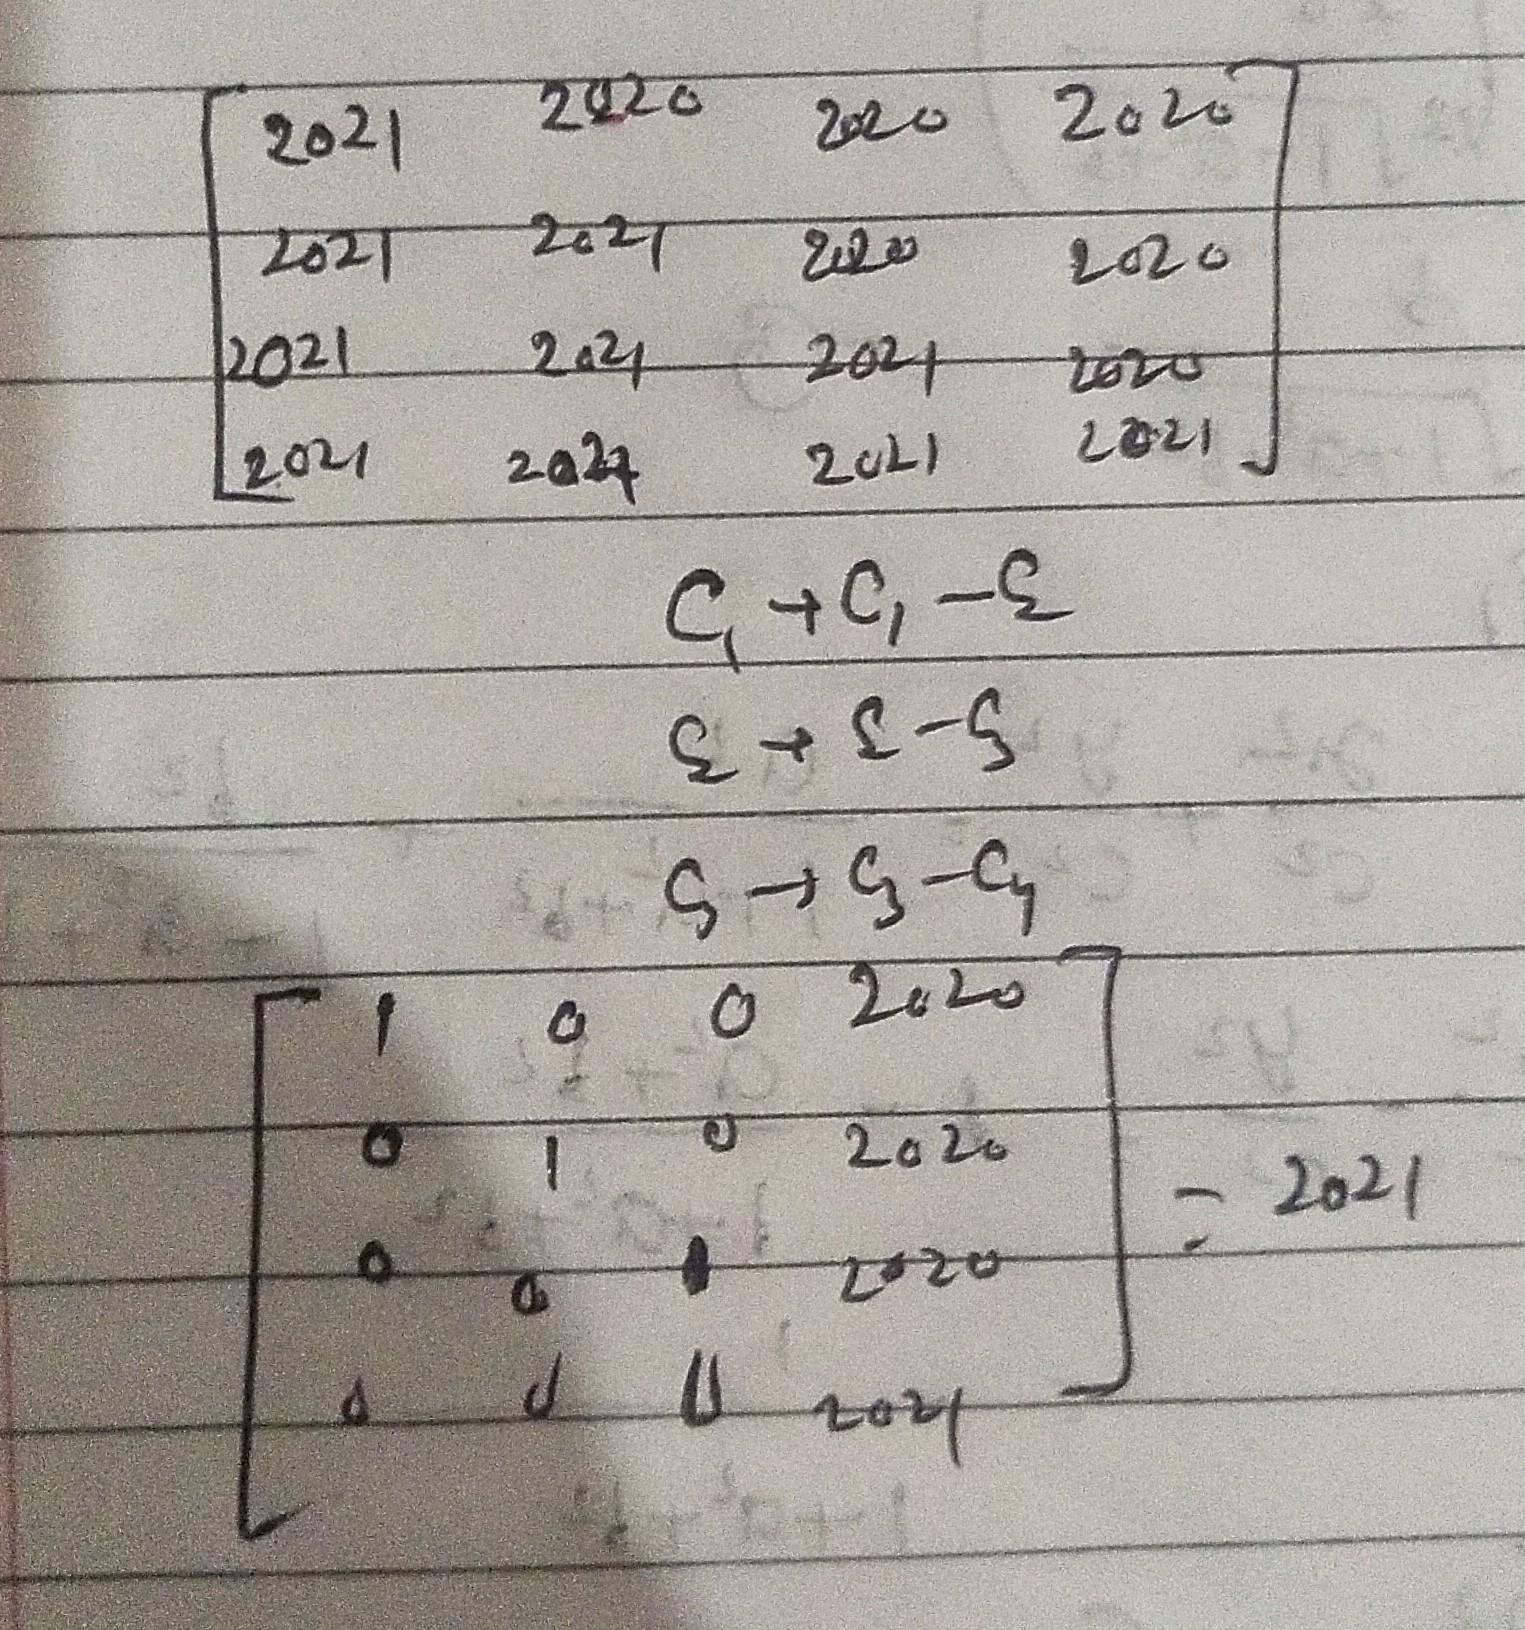 2021 2020 2020 2020
2021 2021 2020 2020
2021 2021 2021 2020
2021 2021 2021 2021
C₁ → C₁ - C₂
C₂ → C₂ - C₃
C₃ → C₃ - C₄
1 0 0 2020
0 1 0 2020 = 2021
0 0 1 2020
0 0 0 2021